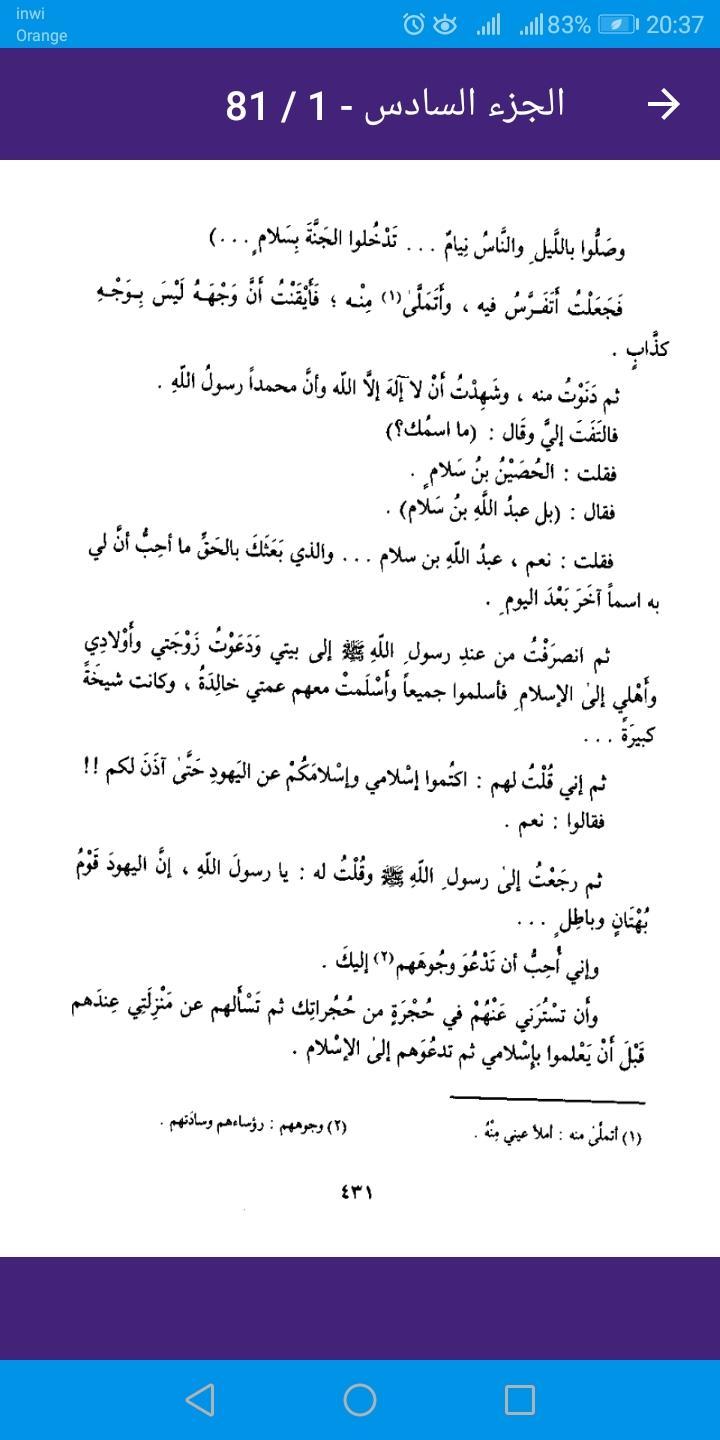 inwi
Orange
83%
20:37
الجزء السادس - 1 / 81
وصَلُّوا باللَّيلِ والنَّاسُ نِيامٌ ... تَدْخُلوا الجَنَّةَ بِسَلامٍ ...)
فَجَعَلْتُ أَتَفَرَّسُ فيه ، وأَتَمَلَّىٰ(١) مِنْه ؛ فَأَيْقَنْتُ أَنَّ وَجْهَهُ لَيْسَ بِوَجْهِ
كذَّابٍ .
ثم دَنَوْتُ منه ، وشَهِدْتُ أَنْ لا إِلهَ إلَّا اللّه وأنَّ محمداً رسولُ اللّهِ .
فالتَفَتَ إليَّ وقَال : (ما اسمُك؟)
فقلت : الحُصَيْنُ بنُ سَلامٍ .
فقال : (بل عبدُ اللَّهِ بنُ سَلام) .
فقلت : نعم ، عبدُ اللّهِ بن سلام ... والذي بَعَثَكَ بالحَقِّ ما أحِبُّ أنَّ لي
به اسماً آخَرَ بَعْدَ اليومِ .
ثم انصرَفْتُ من عندِ رسولِ اللّهِ ﷺ إلى بيتي وَدَعَوْتُ زَوْجَتي وأَوْلادِي
وأَهْلي إلىٰ الإسلامِ فأسلموا جميعاً وأَسْلَمتْ معهم عمتي خالِدَةُ ، وكانت شيخَةً
كبيرَةً ...
ثم إني قُلْتُ لهم : اكتُموا إسْلامي وإسْلامَكُمْ عن اليَهودِ حَتَّىٰ آذَنَ لكم !!
فقالوا : نعم .
ثم رجَعْتُ إلىٰ رسولِ اللّهِ ﷺ وقُلْتُ له : يا رسولَ اللّهِ ، إنَّ اليهودَ قَوْمُ
بُهْتَانٍ وباطِلٍ ...
وإني أُحِبُّ أن تَدْعُوَ وجُوهَهم(٢) إليكَ .
وأن تسْتُرَني عَنْهُمْ في حُجْرَةٍ من حُجُراتِك ثم تَسْأَلهم عن مَنْزِلَتِي عِندَهم
قَبْلَ أَنْ يَعْلموا بإِسْلامي ثم تدعُوَهم إلىٰ الإسْلام .
(١) أتملَّىٰ منه : أملأ عيني مِنْهُ .
(٢) وجوههم : رؤساءهم وسادَتهم .
٤٣١